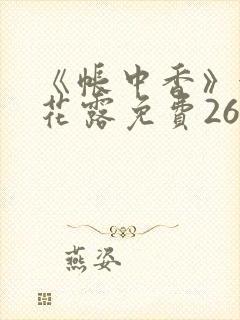 《帳中香》
花露免費26
燕姿